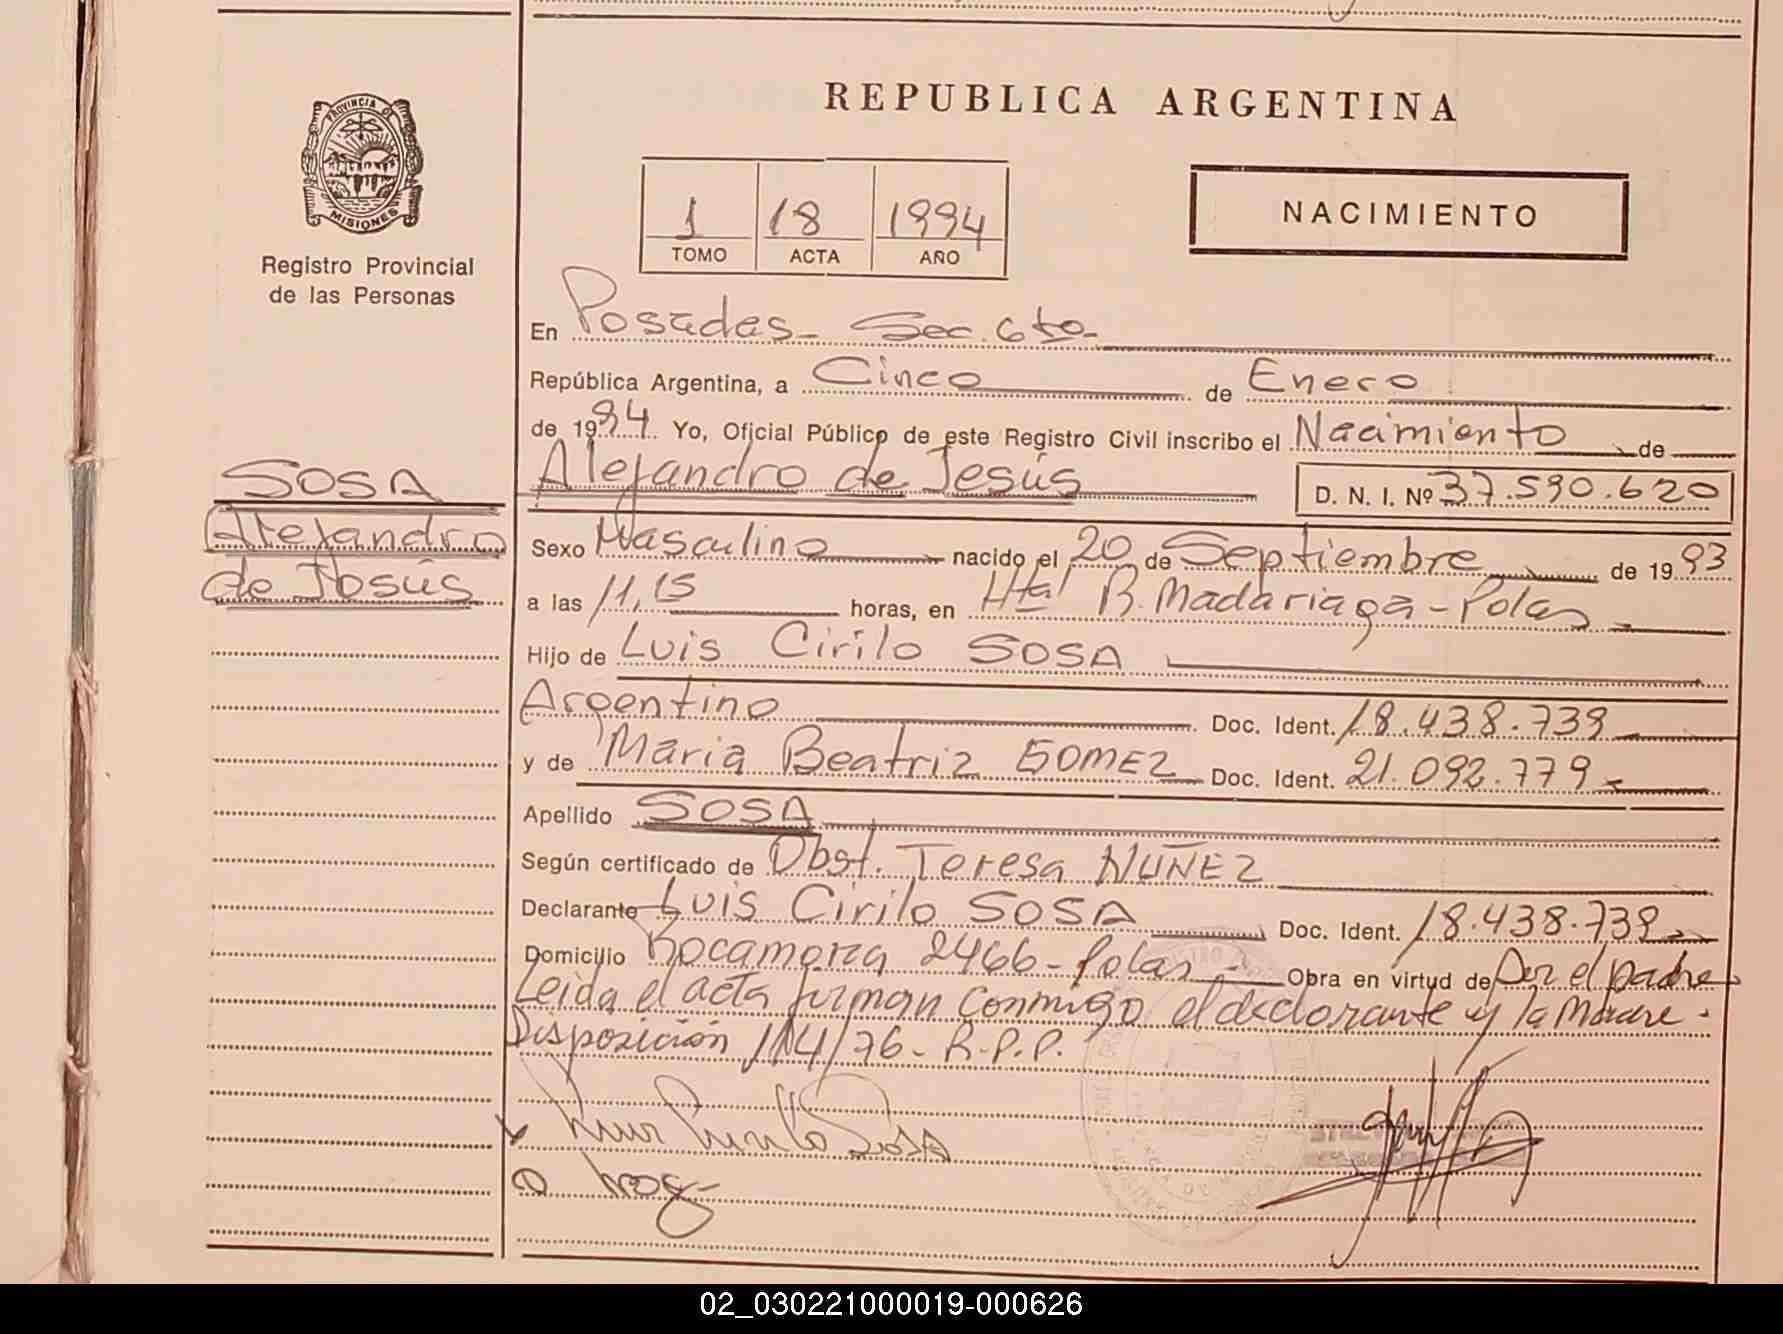 PROVINCIA DE
MISIONES
Registro Provincial
de las Personas
SOSA
Alejandro
de Jesús
REPUBLICA ARGENTINA
1 18 1994
TOMO ACTA AÑO
NACIMIENTO
En Posadas - Sec. 6to -
República Argentina, a Cinco de Enero
de 1994 Yo, Oficial Público de este Registro Civil inscribo el Nacimiento de
Alejandro de Jesús D. N. I. Nº 37.590.620
Sexo Masculino nacido el 20 de Septiembre de 1993
a las 11,15 horas, en Htal R. Madariaga - Pdas
Hijo de Luis Cirilo SOSA
Argentino Doc. Ident. 18.438.739
y de Maria Beatriz GOMEZ Doc. Ident. 21.092.779
Apellido SOSA
Según certificado de Obst. Teresa NUÑEZ
Declarante Luis Cirilo SOSA Doc. Ident. 18.438.739
Domicilio Rocamora 2466 - Pdas - Obra en virtud de Ser el padre
Leida el acta firman conmigo el declarante y la Madre.
Disposición 114/76 - R.P.P.
Sosa
02_030221000019-000626